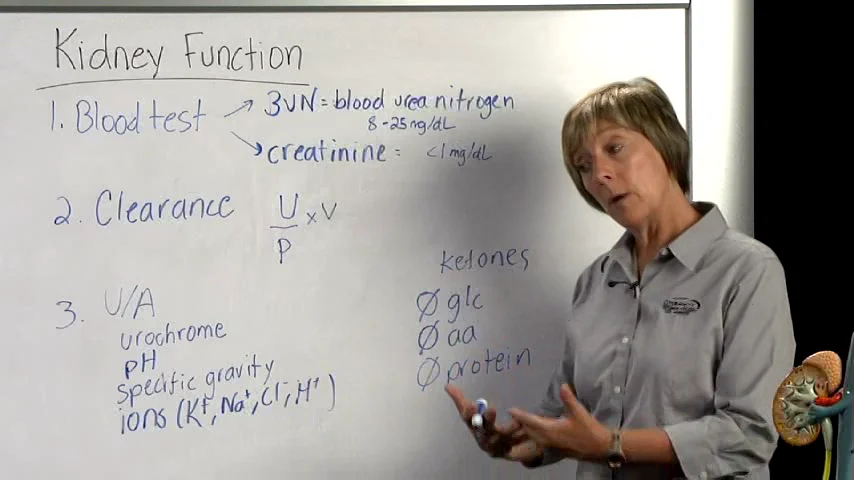 Kidney Function
1. Blood test
BUN = blood urea nitrogen
8-25 mg/dL
creatinine = <1 mg/dL
2. Clearance U/P x V
3. U/A
urochrome
pH
specific gravity
ions (K⁺, Na⁺, Cl⁻, H⁺)
ketones
Ø glc
Ø aa
Ø protein